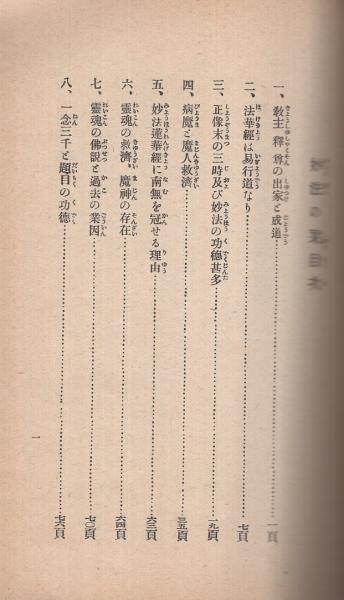 一、教主釋尊の出家と成道……一頁
二、法華經は易行道なり……七頁
三、正像末の三時及び妙法の功德甚多……一九頁
四、病魔と魔人救濟……三五頁
五、妙法蓮華經に南無を冠せる理由……六三頁
六、靈魂の救濟、魔神の存在……六四頁
七、靈魂の佛說と過去の業因……七〇頁
八、一念三千と題目の功德……七六頁
一